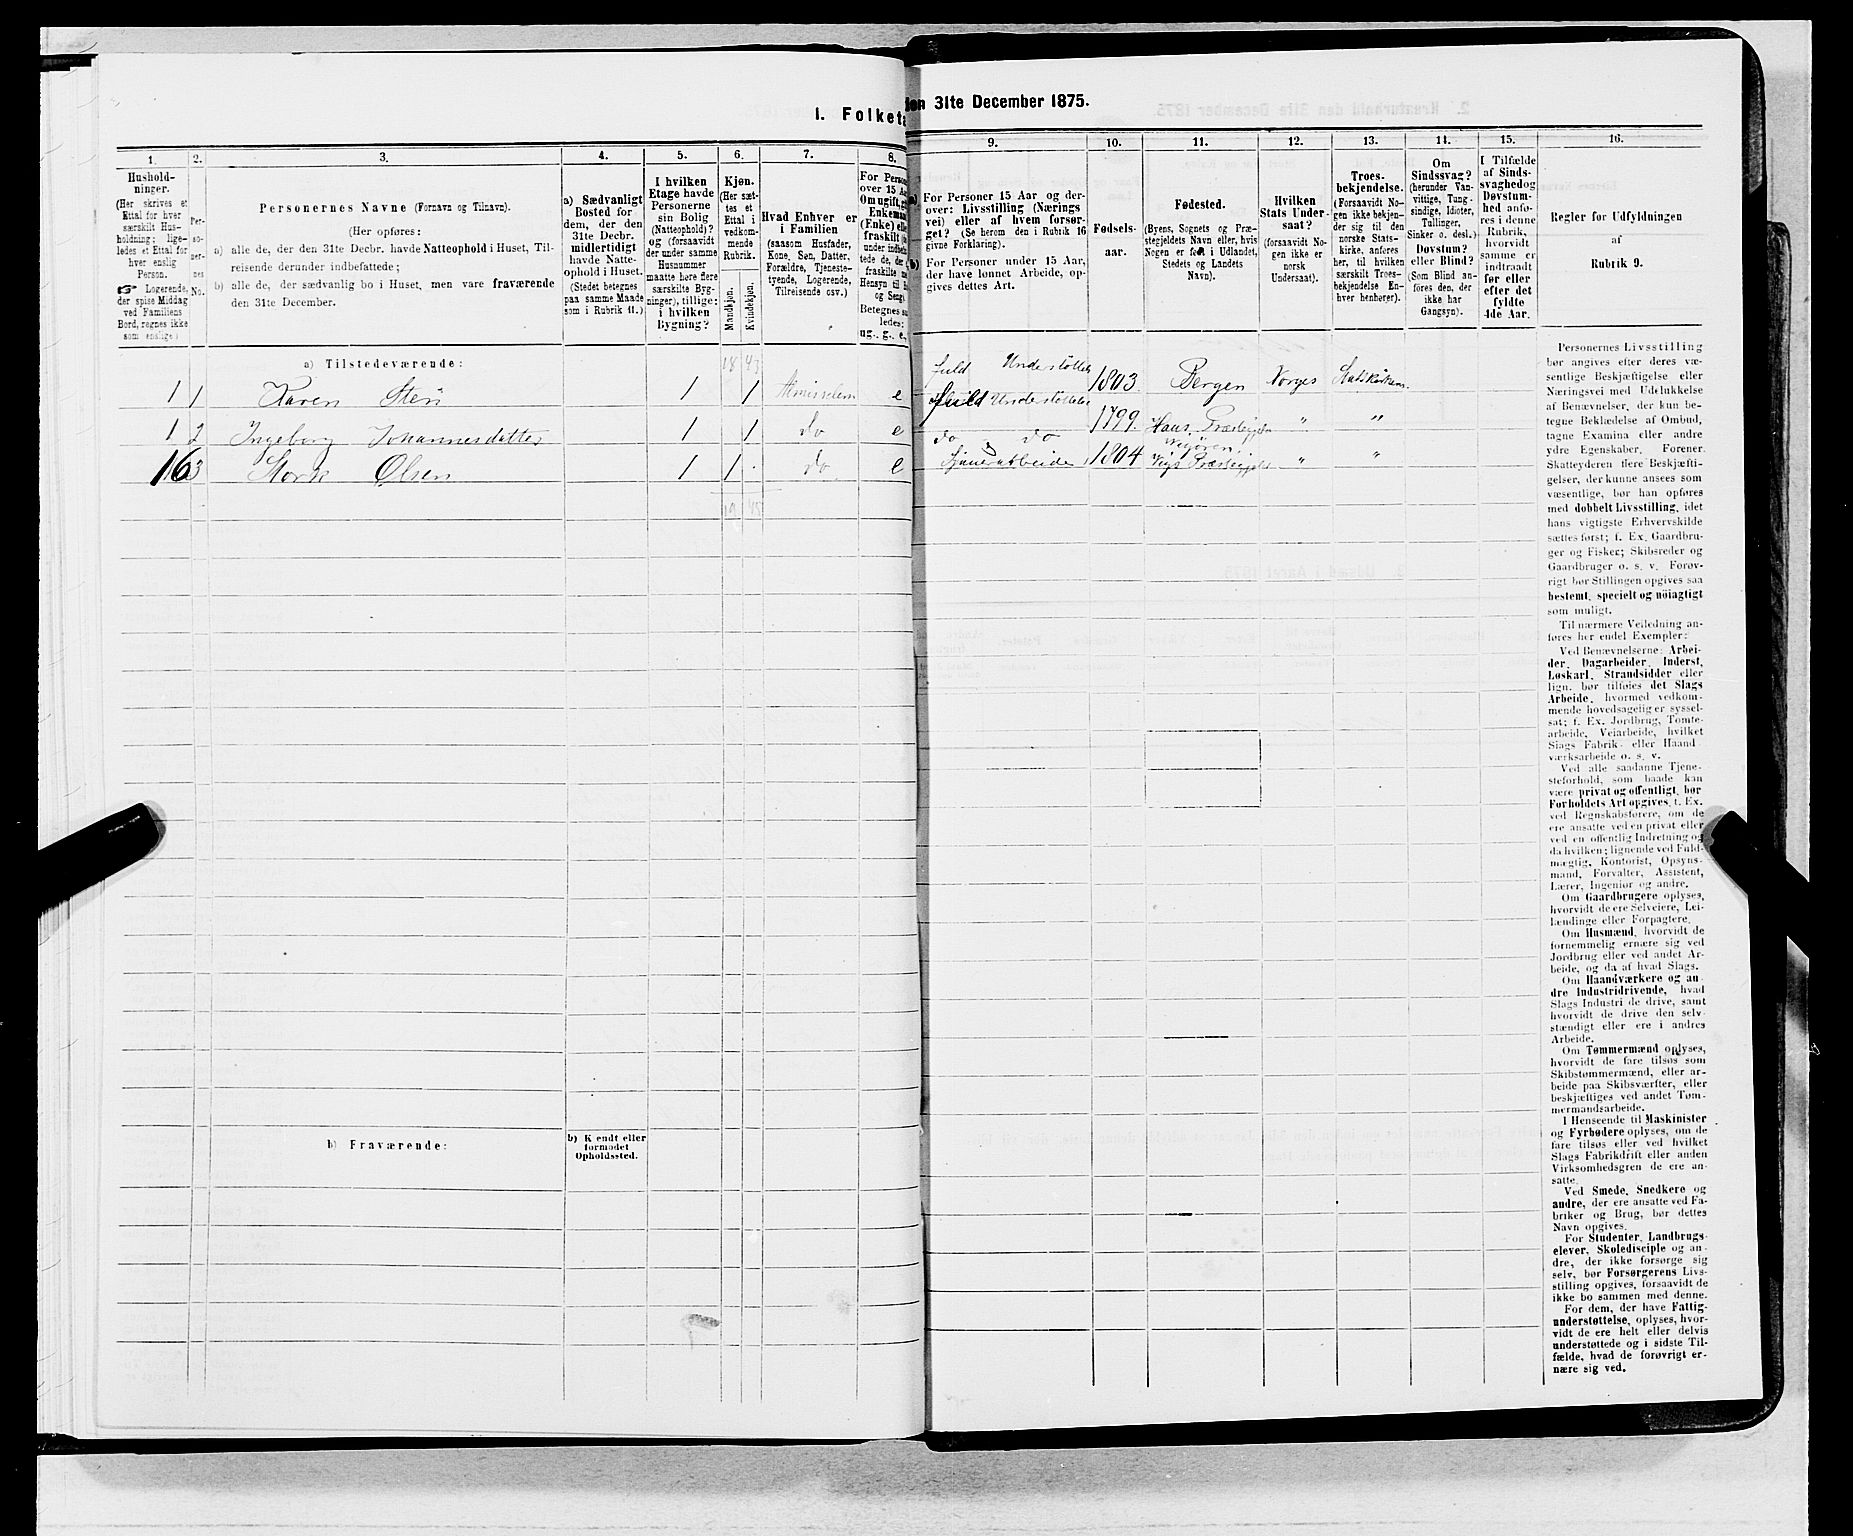 1. Folketæ
den 31te December 1875.
1.
2.
3.
4.
5.
6.
7.
8.
9.
10.
11.
12.
13.
14.
15.
16.
Hushold-
ninger.
(Her skrives et
Ettal for hver
særskilt Hus-
holdning; lige-
ledes et Ettal for
hver enslig
Person.
☞ Logerende,
der spise Middag
ved Familiens
Bord, regnes ikke
som enslige.)
Per-
so-
ner-
nes
No.
Personernes Navne (Fornavn og Tilnavn).
(Her opføres:
a) alle de, der den 31te Decbr. havde Natteophold i Huset, Til-
reisende derunder indbefattede;
b) alle de, der sædvanlig bo i Huset, men vare fraværende
den 31te December.
a) Sædvanligt
Bosted for
dem, der den
31te Decbr.
midlertidigt
havde Natte-
ophold i Huset.
(Stedet betegnes
paa samme Maade
som i Rubrik 11.)
I hvilken
Etage havde
Personerne
sin Bolig
(Natteophold)?
og (forsaavidt
der under samme
Husnummer
maatte høre flere
særskilte Byg-
ninger), tillige:
i hvilken
Bygning?
Kjøn.
(Her sæt-
tes et
Ettal i
vedkom-
mende
Rubrik.
Mandkjøn.
Kvindekjøn.
Hvad Enhver er
i Familien
(saasom Husfader,
Kone, Søn, Datter,
Forældre, Tjeneste-
tyende, Logerende,
Tilreisende osv.)
For Person
over 15 Aa
Om ugift, gi
Enkeman
(Enke) elle
fraskilt (h
under indbe
tede de, der
fraskilte m
Hensyn til B
og Seng).
Betegnes sa
ledes:
ug., g., e.,
a) For Personer 15 Aar og der-
over: Livsstilling (Nærings
vei) eller af hvem forsør-
get? (Se herom den i Rubrik 16
givne Forklaring).
b) For Personer under 15 Aar,
der have lønnet Arbeide, op-
gives dettes Art.
Fødsels-
aar.
Fødested.
(Byens, Sognets og Præ-
stegjeldets Navn eller, hvis
Nogen er født i Udlandet,
Stedets og Landets
Navn).
Hvilken
Stats Under-
saat?
(forsaavidt No-
gen ikke er
norsk
Undersaat).
Troes-
bekjendelse.
(Forsaavidt No-
gen ikke bekjen-
der sig til den
norske Stats-
kirke, anføres
her, til hvilken
særskilt Troes-
bekjendelse En-
hver henhører).
Om
Sindssvag?
(herunder Van-
vittige, Tung-
sindige, Idioter,
Tullinger,
Sinker o. desl.)
Døvstum?
eller Blind?
(Som Blind an-
føres den, der
ikke har
Gangsyn).
I Tilfælde
af Sinds-
svaghed og
Døvstum-
hed anfø-
res i denne
Rubrik,
hvorvidt
samme er
indtraadt
før eller
efter det
fyldte
4de Aar.
Regler for Udfyldningen
af
Rubrik 9.
a) Tilstedeværende:
18 43
1 1 Karen Sten 1 1 Almisselem e fuld Understøttelse 1803 Bergen Norges Statskirken
fuld Understøttelse
1 2 Ingeborg Johannesdatter 1 1 do e do do 1799 Haus Præstegjeld " "
16 3 Stork Olsen 1 1 do e 1804 Præstegjeld " "
19 45
b) Fraværende:
b) Kjendt eller
formodet
Opholdssted.
Personernes Livsstilling
bør angives efter deres væ-
sentlige Beskjæftigelse eller
Næringsvei med Udelukkelse
af Benævnelser, der kun be-
tegne Beklædelse af Ombud,
tagne Examina eller andre
ydre Egenskaber. Forener
Skatteyderen flere Beskjæfti-
gelser, der kunne ansees som
væsentlige, bør han opføres
med dobbelt Livsstilling, idet
hans vigtigste Erhvervskilde
sættes først; f. Ex. Gaardbru-
ger og Fisker; Skibsreder og
Gaardbruger o. s. v. Forøv-
rigt bør Stillingen opgives saa
bestemt, specielt og nöiagtigt
som muligt.
Til nærmere Veiledning an-
føres her endel Exempler:
Ved Benævnelserne: Arbei-
der, Dagarbeider, Inderst,
Løskarl, Strandsidder eller
lign. bør tilføies det Slags
Arbeide, hvormed vedkom-
mende hovedsagelig er syssel-
sat; f. Ex. Jordbrug, Tomte-
arbeide, Veiarbeide, hvilket
Slags Fabrik- eller Haand-
værksarbeide o. s. v.
Ved alle saadanne Tjene-
steforhold, som baade kan
være privat og offentligt, bør
Forholdets Art opgives, f. Ex.
ved Regnskabsførere, om de
ere ansatte ved en privat eller
ved en offentlig Indretning og
da hvilken; lignende ved Fuld-
mægtig, Kontorist, Opsyns-
mand, Forvalter, Assistent,
Lærer, Ingeniør og andre.
Om Gaardbrugere oplyses,
hvorvidt de ere Selveiere, Lei-
lændinge eller Forpagtere.
Om Husmænd, hvorvidt de
fornemmelig ernære sig ved
Jordbrug eller ved andet Ar-
beide, og da af hvad Slags.
Om Haandværkere og an-
dre Industridrivende, hvad
Slags Industri de drive, samt
hvorvidt de drive den selv-
stændigt eller ere i andres
Arbeide.
Om Tømmermænd oplyses,
hvorvidt de fare tilsøs som
Skibstømmermænd, eller ar-
beide paa Skibsværfter, eller
beskjæftiges ved andet Tøm-
mermandsarbeide.
I Henseende til Maskinister
og Fyrbødere oplyses, om de
fare tilsøs eller ved hvilket
Slags Fabrikdrift eller anden
Virksomhedsgren de ere an-
satte.
Ved Smede, Snedkere og
andre, der ere ansatte ved Fa-
briker og Brug, bør dettes
Navn opgives.
For Studenter, Landbrugs-
elever, Skoledisciple og an-
dre, der ikke forsørge sig
selv, bør Forsørgerens Livs-
stilling opgives, forsaavidt de
ikke bo sammen med denne.
For dem, der have Fattig-
understøttelse, oplyses, hvor-
vidt de ere helt eller delvis
understøttede og i sidste Til-
fælde, hvad de forøvrigt er-
nære sig ved.